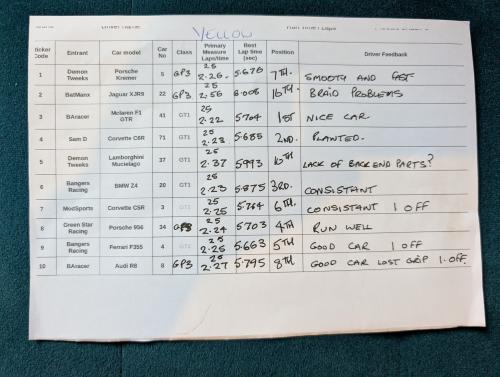 YELLOW
Sticker Code Entrant Car model Car No Class Primary Measure Laps/time Best Lap time (sec) Position Driver Feedback
1 Demon Tweeks Porsche Kremer 5 GP3 25 2.26. 5.676 7TH. SMOOTHY AND
2 BatManx Jaguar XJR9 22 GP3 25 2.56 6.008 10TH. BRAID PROBLEMS
3 BAracer Mclaren F1 GTR 41 GT1 25 2.22 5.704 1ST NICE CAR.
4 Sam D Corvette C6R 71 GT1 25 2.23 5.685 2ND. PLANTED.
5 Demon Tweeks Lamborghini Mucielago 37 GT1 25 2.37 5993 LACK OF BACK END PARTS?
6 Bangers Racing BMW Z4 20 GT1 25 2.23 5.875 3RD. CONSISTANT
7 ModSports Corvette C5R 3 GT1 25 2.25 5.764 6TH. CONSISTANT 1 OFF
8 Green Star Racing Porsche 956 34 GP3 25 2.24 5.703 4TH RUN WELL
9 Bangers Racing Ferrari F355 4 GT1 25 2.25 5.663 5TH GOOD CAR 1 OFF
10 BAracer Audi R8 8 GP3 25 2.27 5.795 8TH GOOD CAR LOST GRIP 1.OFF.